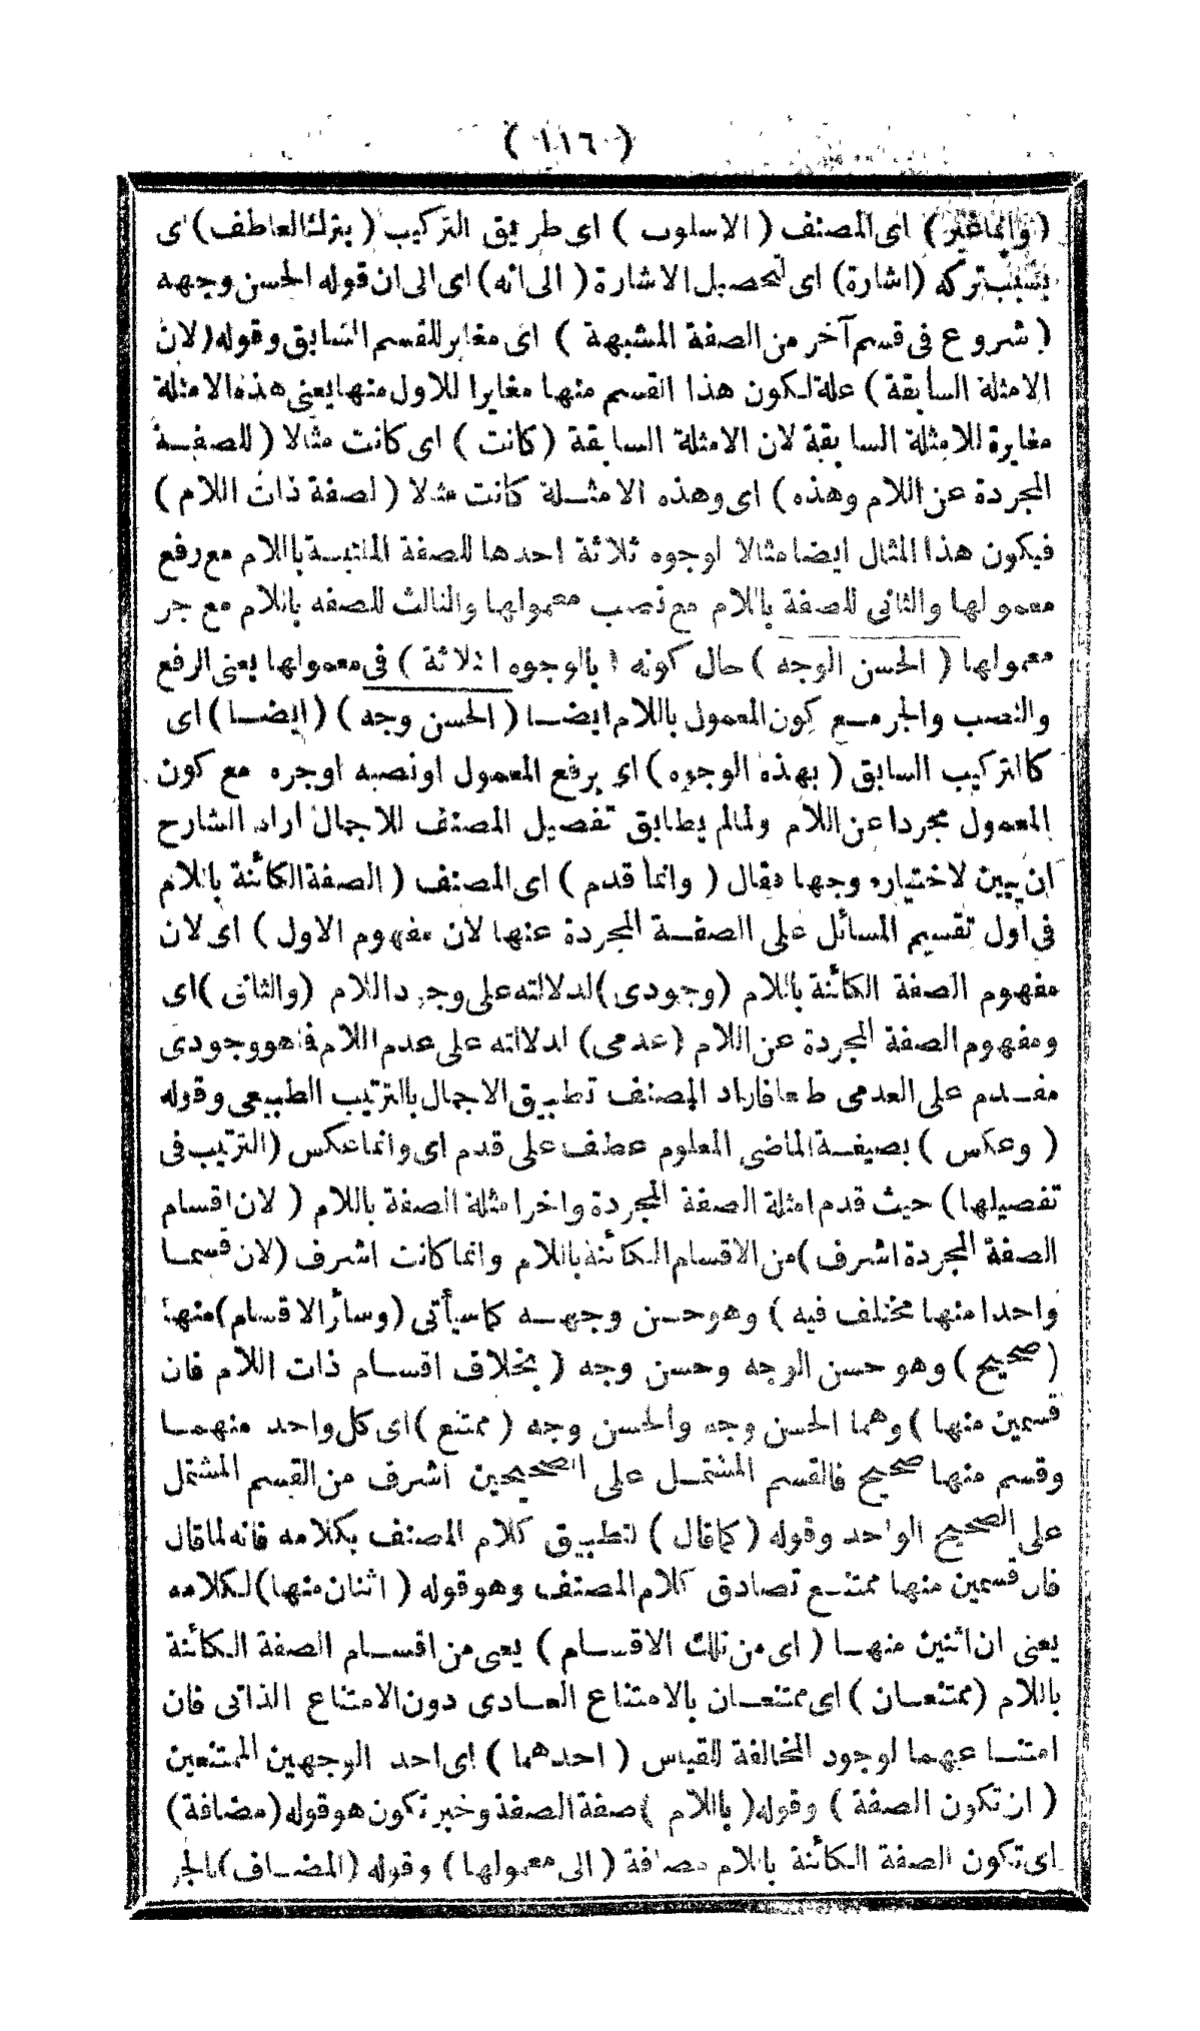 ( ١١٦ )
( وانماغير ) اى المصنف ( الاسلوب ) اى طريق التركيب ( بترك العاطف ) اى
بسبب تركه ( اشارة ) اى لتحصيل الاشارة ( الى انه ) اى الى ان قوله الحسن وجهه
( شروع فى قسم آخر من الصفة المشبهة ) اى مغاير للقسم السابق وقوله ( لان
الامثلة السابقة ) علة لكون هذا القسم منها مغايرا للاول منها يعنى هذه الامثلة
مغايرة للامثلة السابقة لان الامثلة السابقة ( كانت ) اى كانت مثالا ( للصفة
المجردة عن اللام وهذه ) اى وهذه الامثلة كانت مثلا ( لصفة ذات اللام )
فيكون هذا المثال ايضا مثالا لوجوه ثلاثة احدها للصفة الملتبسة باللام مع رفع
معمولها والثانى للصفة باللام مع نصب معمولها والثالث للصفه باللام مع جر
معمولها ( الحسن الوجه ) حال كونه ( بالوجوه الثلاثة ) فى معمولها يعنى الرفع
والنصب والجر مع كون المعمول باللام ايضا ( الحسن وجه ) ( ايضا ) اى
كالتركيب السابق ( بهذه الوجوه ) اى برفع المعمول اونصبه اوجره مع كون
المعمول مجردا عن اللام ولمالم يطابق تفصيل المصنف للاجمال اراد الشارح
ان يبين لاختياره وجها فقال ( وانما قدم ) اى المصنف ( الصفة الكائنة باللام
فى اول تقسيم المسائل على الصفة المجردة عنها لان مفهوم الاول ) اى لان
مفهوم الصفة الكائنة باللام ( وجودى ) لدلالته على وجود اللام ( والثانى ) اى
ومفهوم الصفة المجردة عن اللام ( عدمى ) لدلالته على عدم اللام فاهو وجودى
مقدم على العدمى طبعا فاراد المصنف تطبيق الاجمال بالترتيب الطبيعى وقوله
( وعكس ) بصيغة الماضى المعلوم عطف على قدم اى وانما عكس ( الترتيب فى
تفصيلها ) حيث قدم امثلة الصفة المجردة واخر امثلة الصفة باللام ( لان اقسام
الصفة المجردة اشرف ) من الاقسام الكائنة باللام وانما كانت اشرف ( لان قسما
واحدا منها مختلف فيه ) وهو حسن وجهه كما سيأتى ( وسائر الاقسام ) منها
( صحيح ) وهو حسن الوجه وحسن وجه ( بخلاف اقسام ذات اللام فان
قسمين منها ) وهما الحسن وجه والحسن وجه ( ممتنع ) اى كل واحد منهما
وقسم منها صحيح فالقسم المشتمل على الصحيحين اشرف من القسم المشتمل
على الصحيح الواحد وقوله ( كما قال ) لتطبيق كلام المصنف بكلامه فانه لما قال
فان قسمين منها ممتنع تصادق كلام المصنف وهو قوله ( اثنان منها ) لكلامه
يعنى ان اثنين منها ( اى من تلك الاقسام ) يعى من اقسام الصفة الكائنة
باللام ( ممتنعان ) اى ممتنعان بالامتناع العادى دون الامتناع الذاتى فان
امتناعهما لوجود المخالفة للقياس ( احدهما ) اى احد الوجهين الممتنعين
( ان تكون الصفة ) وقوله ( باللام ) صفة الصفة وخبر تكون هو قوله ( مضافة )
اى تكون الصفة الكائنة باللام مضافة ( الى معمولها ) وقوله ( المضاف ) بالجر